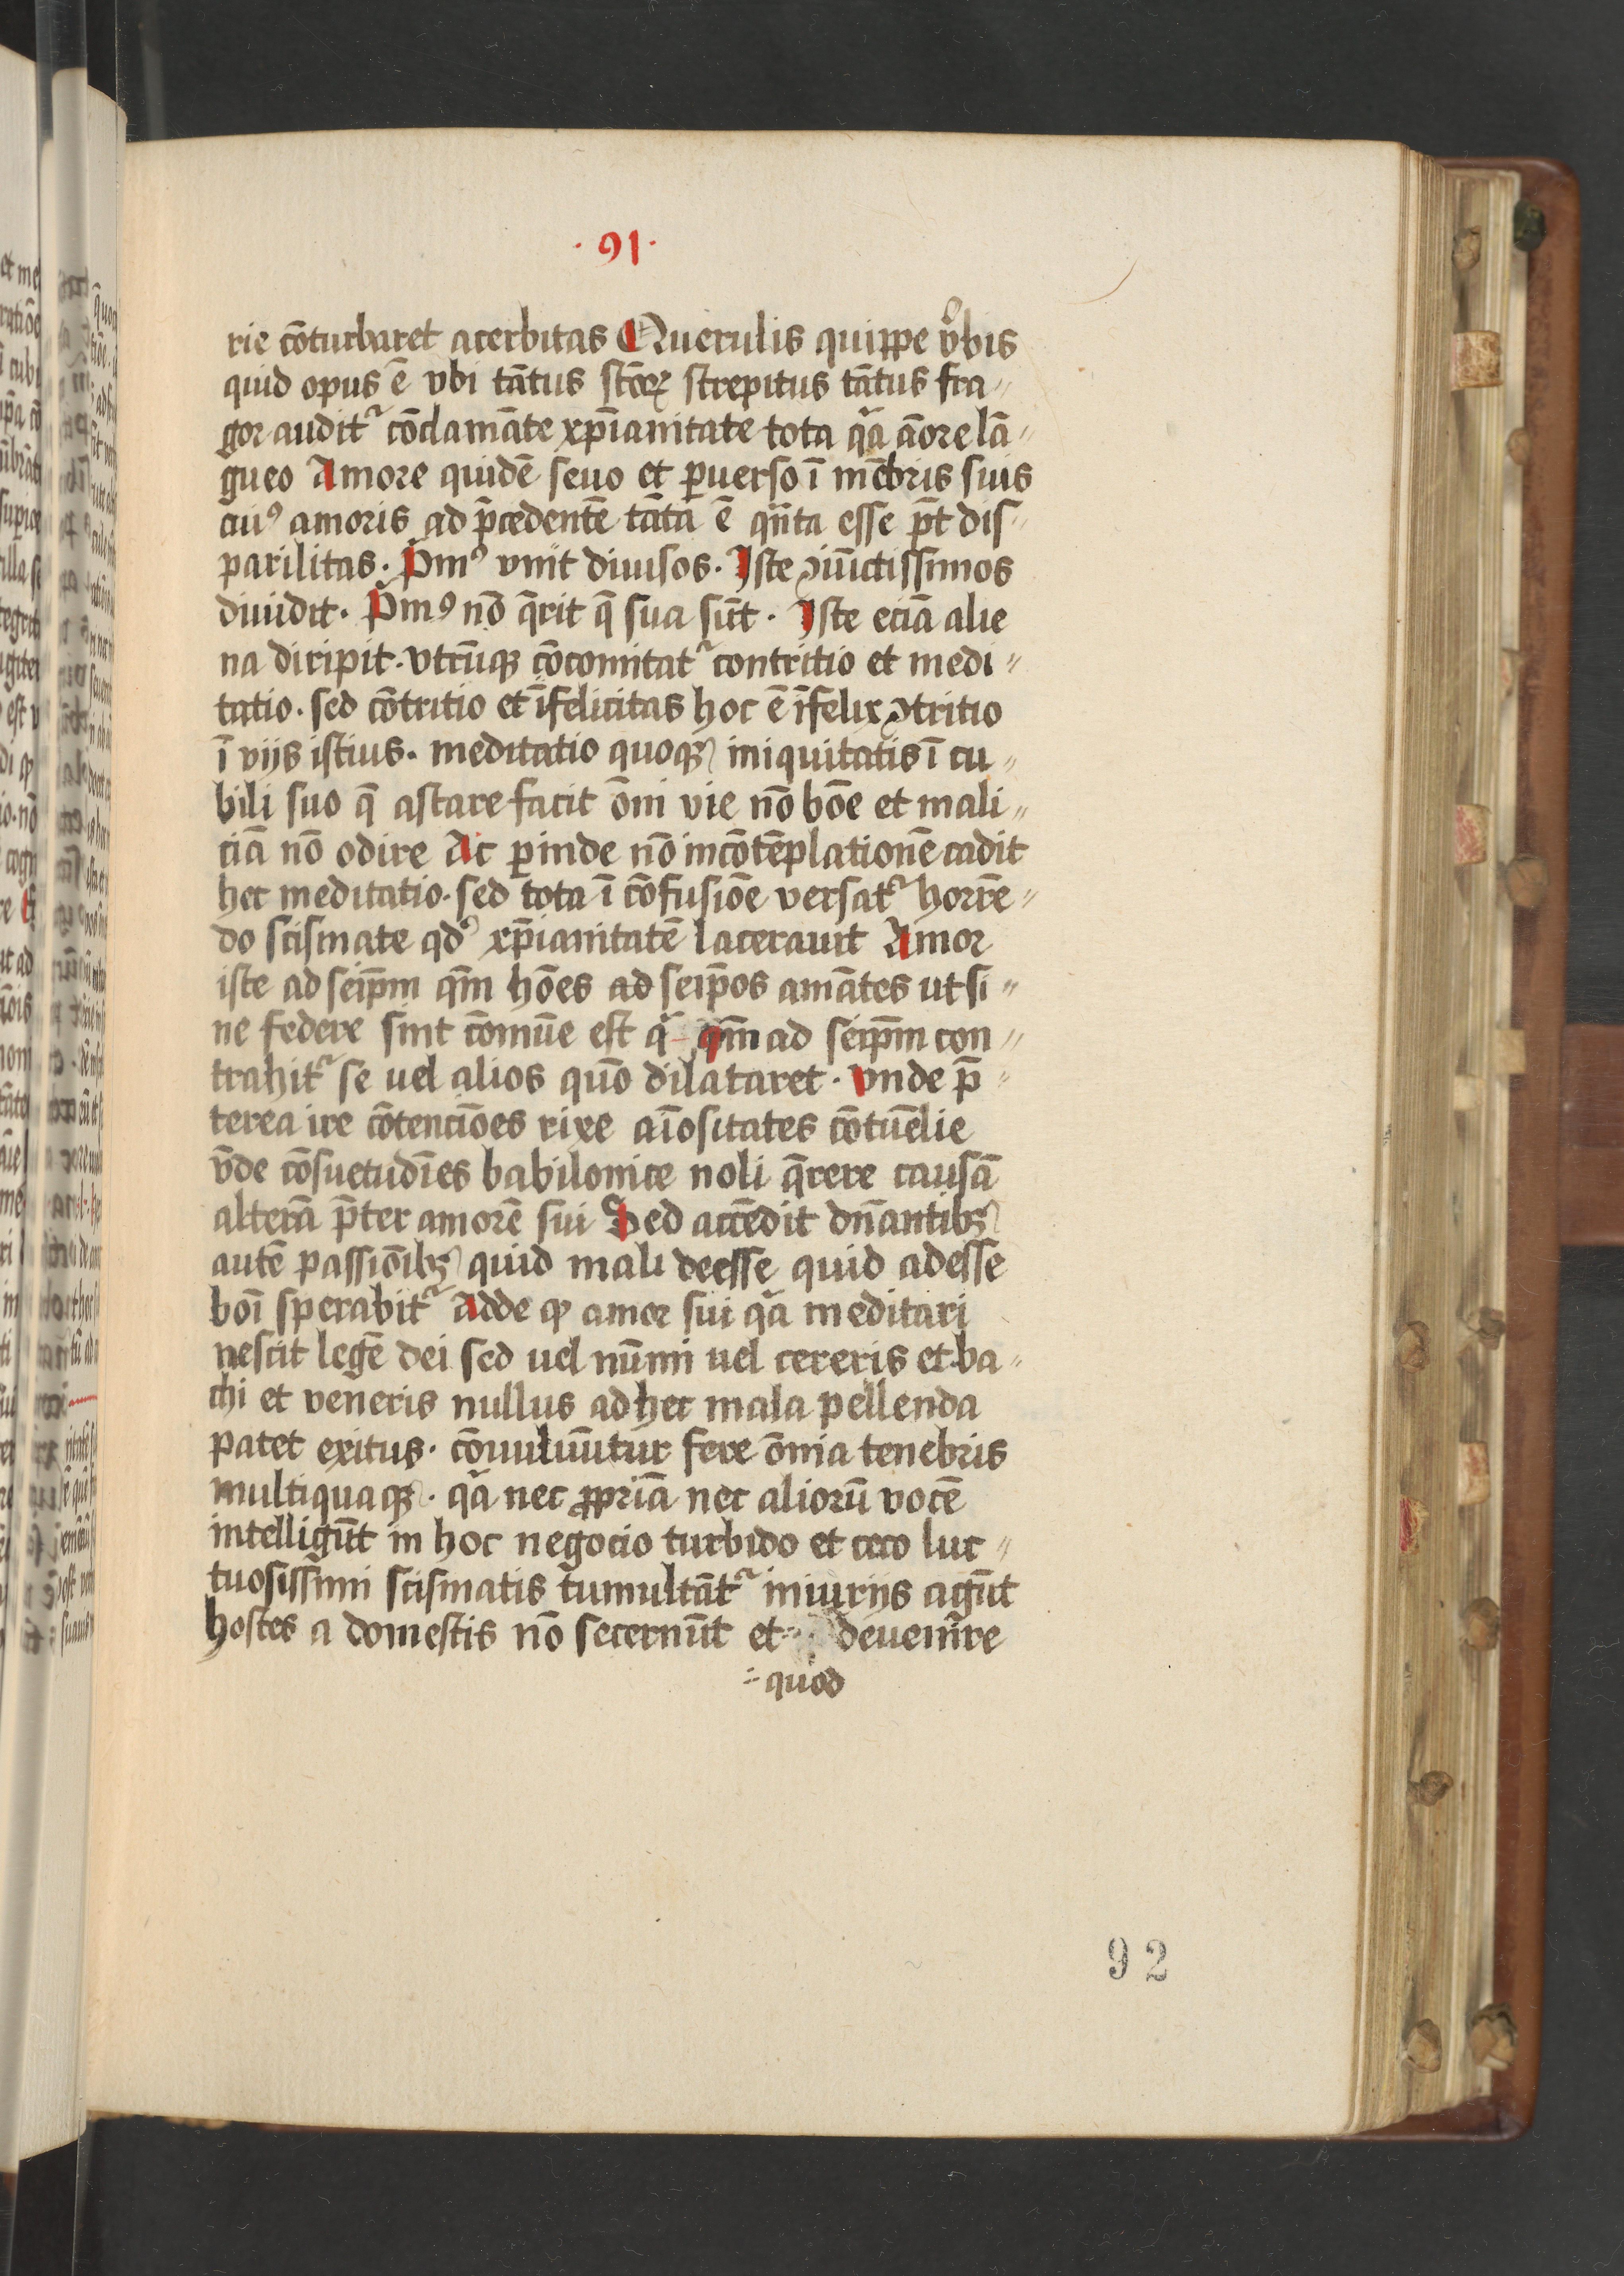 · 91 ·
rie cōturbaret acerbitas Querulis quippe v̓bis
quid opus ē vbi tātus sctōꝝ strepitus tātus fra〃
gor audit᷑ cōclamāte xp̄ianitate tota qͣa āore lā〃
gueo Amore quidē seuo et ꝑuerso ī mēbris suis
cuiꝰ amoris ad p̄cedentē tāta ē qn̄ta esse pt̄ dis〃
parilitas · Pͥmꝰ vnit diuisos · Iste ꝯiūctissimos
diuidit · Pͥmꝰ nō q̄rit q̄ sua sūt · Iste eciā alie
na diripit · vtrūqꝫ cōcomitat᷑ contritio et medi〃
tatio · sed cōtritio et īfelicitas hoc ē īfelix ꝯtritio
ī vijs istius · meditatio quoqꝫ iniquitatis ī cu〃
bili suo q̄ astare facit ōni vie nō bōe et mali〃
ciā nō odire Ac ꝓinde nō in cōtēplationē cadit
hec meditatio · sed tota ī cōfusiōe versat᷑ horrē〃
do scismate qdꝰ xp̄ianitatē lacerauit Amor
iste ad seip̄m qm̄ hōes ad seip̄os amātes ut si〃
ne federe sint cōmūe est qͣ qm̄ ad seip̄m con〃
trahit᷑ se uel alios quō dilataret · vnde p̄〃
terea ire cōtenciōes rixe aīositates cōtūelie
v̄de cōsuetudīes babilonice noli q̄rere causā
alterā p̄ter amorē sui Sed accēdit dn̄antibꝫ
autē passiōibꝫ quid mali deesse quid adesse
boī sperabit᷑ Adde ꝙ amor sui qͣa meditari
nescit legē dei sed uel nūmi uel cereris et ba〃
chi et veneris nullus ad hec mala pellenda
patet exitus · cōuuluūtur fere ōmia tenebris
multiquaqꝫ · qͣa nec ꝓpriā nec aliorū vocē
intelligūt in hoc negocio turbido et ceco luc〃
tuosissimi scismatis tumultāt᷑ iniurijs agūt
hostes a domestis nō secernūt et devenire
〃quod
92